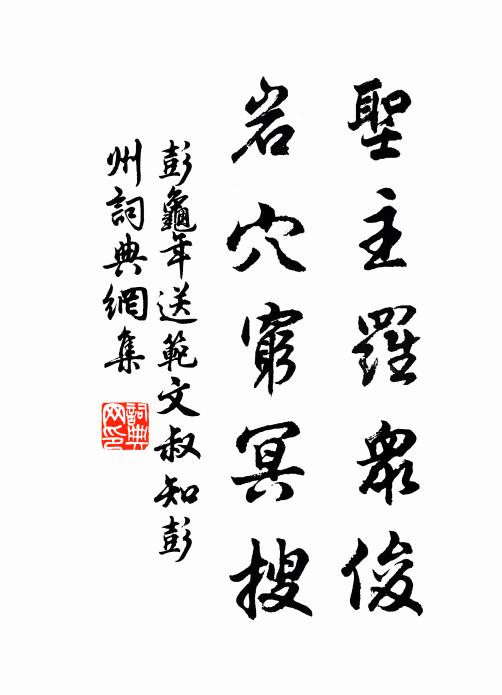 聖主羅衆俊
岩穴窮冥搜
彭龜年送範文叔知彭
州詞典網集
詞典网印